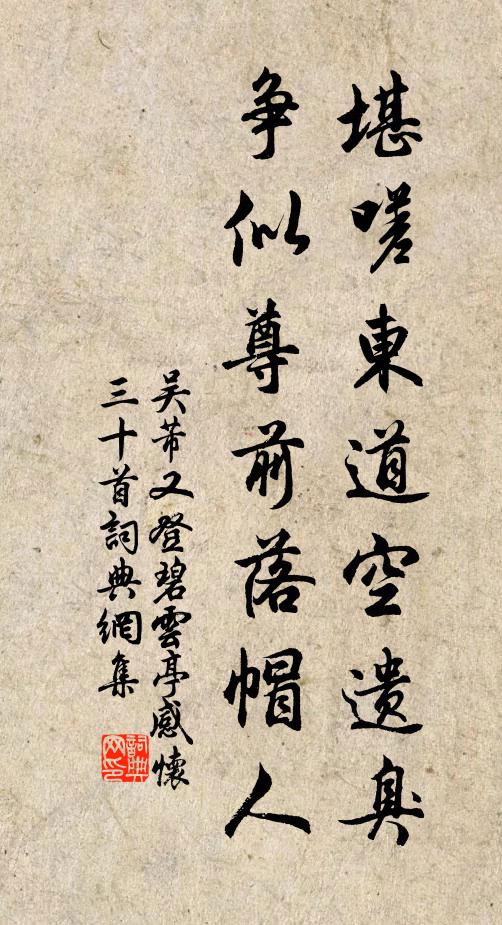 堪嗟東道空遺臭
争似尊前落帽人
吴芾又登碧雲亭感懷
三十首詞典網集
詞典
网印